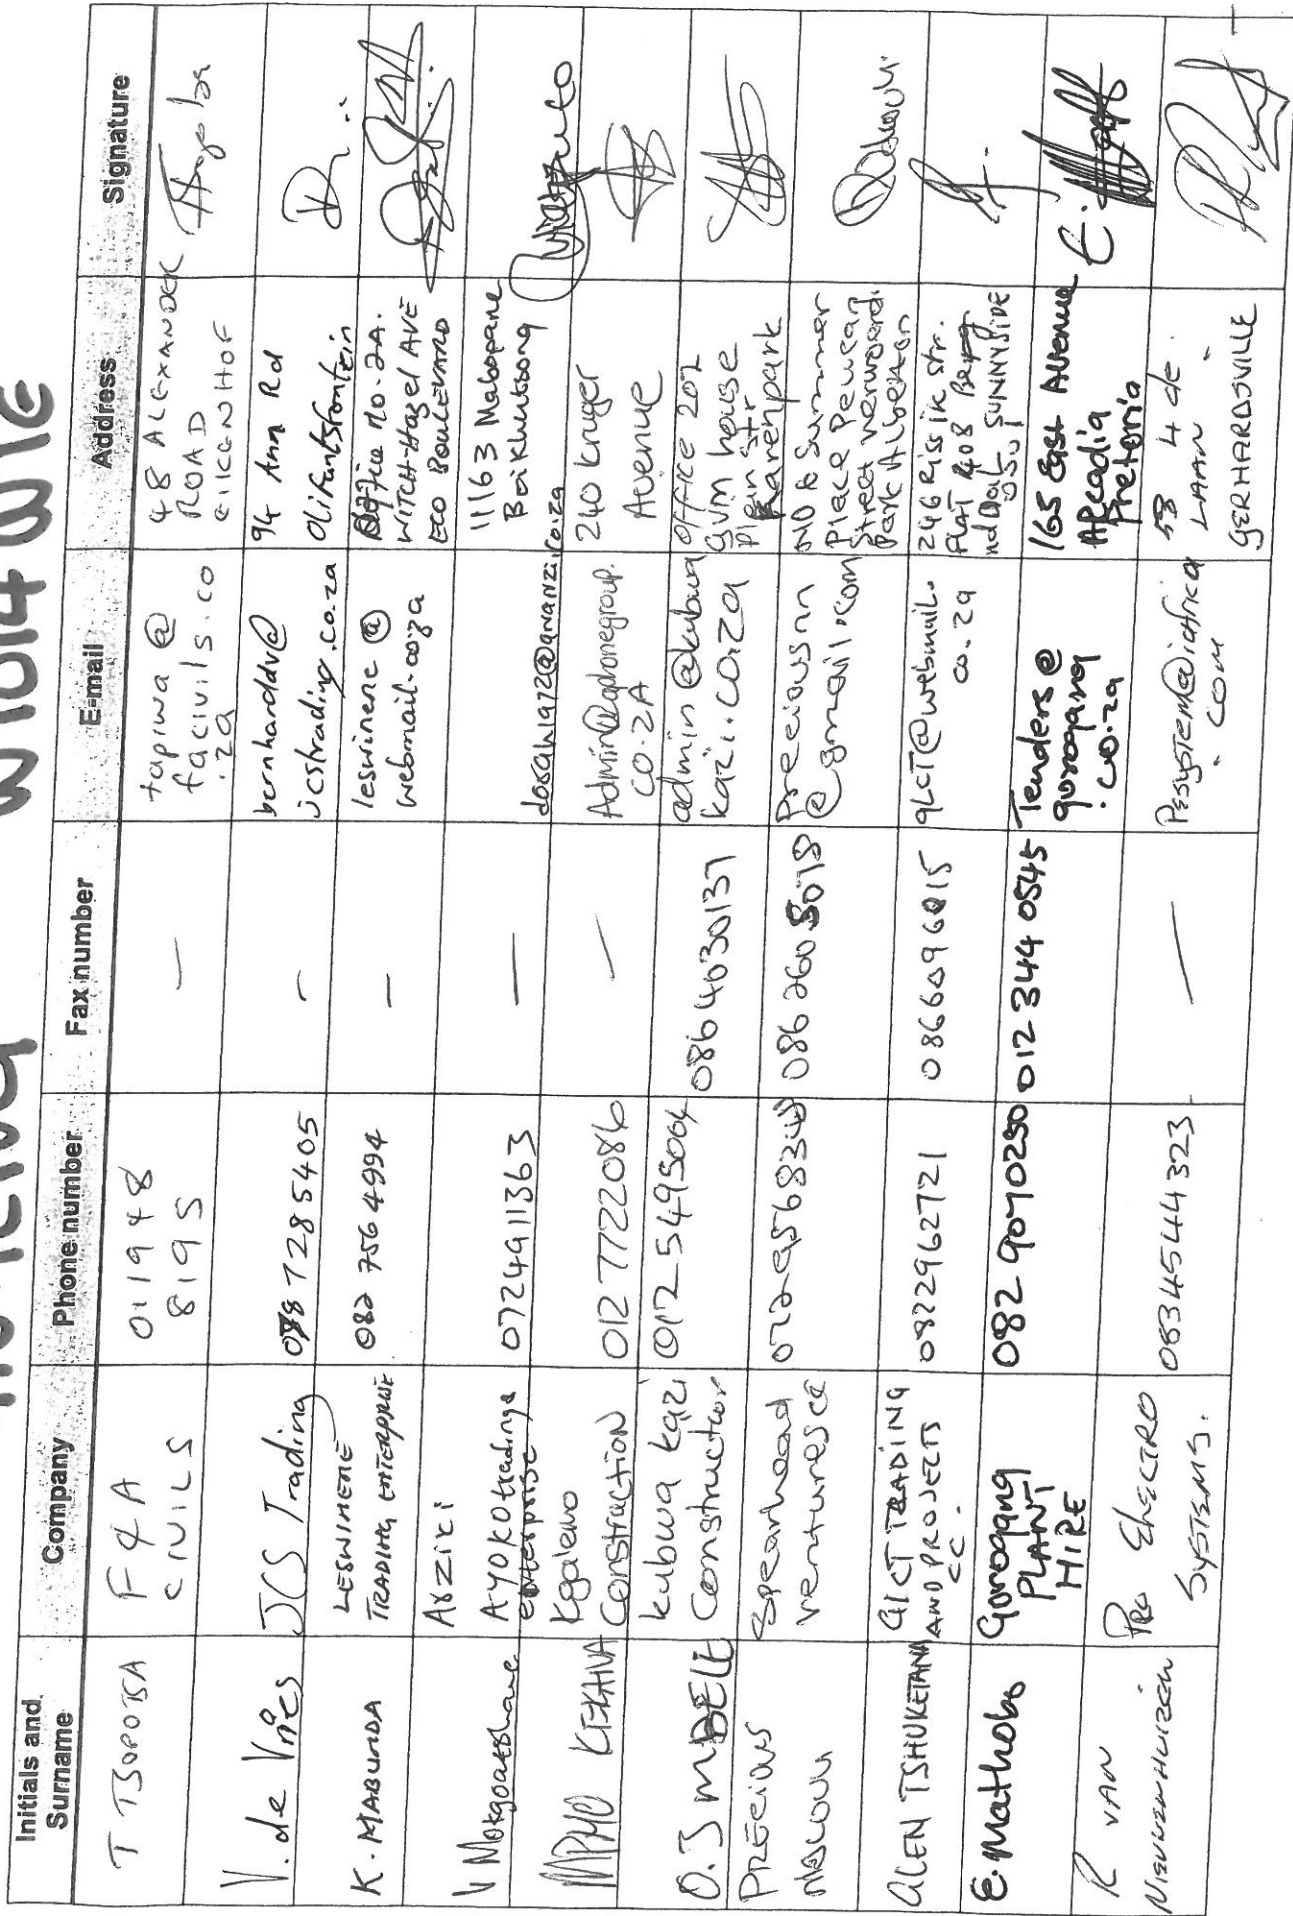 W1014 W1E
Initials and Surname
Company
Phone number
Fax number
E-mail
Address
Signature
T TSOPOTSA
F & A
CIVILS
011948
8195
—
tapiwa @
facivils.co
.za
48 ALEXANDER
ROAD
V. de Vries
JCS Trading
7285405
—
bernharddv@
jcstrading.co.za
94 Ann Rd
Olifantsfontein
K. MABUNDA
LESWINENE
TRADING ENTERPRISE
082 756 4994
—
leswinene @
webmail.co.za
Office no. 2A.
WITCH-Hazel AVE
ECO BOULEVARD
V Mokgoatshane
AYOKO trading
enterprise
0724911363
—
11163 Mabopane
MPHO KEKANA
Kgalemo
Construction
012 7722086
—
CO.ZA
240 Kruger
Avenue
O.J MDELE
Kubwa kazi
Construction
012 5495004
0864030137
admin @kubwa
kazi.co.za
OFFICE 202
Gum house
plein str
Karenpark
Precious
Spearhead
ventures cc
0729568348
086 260 8078
Preciousnn
@gmail.com
NO 6 Summer
Place Pewcan
Street verwoerd
Park Alberton
ALEN TSHUKETANA
GLCT TRADING
AND PROJECTS
CC.
0822962721
0866096015
GLCT@webmail.
co.za
246 Rissik str.
Flat 408
SUNNYSIDE
E. Mathobo
Gorogang
PLANT
HIRE
082 9070250
012 344 0545
Tenders @
gorogang
.co.za
165 East Avenue
Arcadia
Pretoria
R VAN
NIEUWENHUIZEN
PRO ELECTRO
SYSTEMS.
0834544323
—
Pesystem@iafrica
.com
58 4 de
LAAN
GERHARDSVILLE